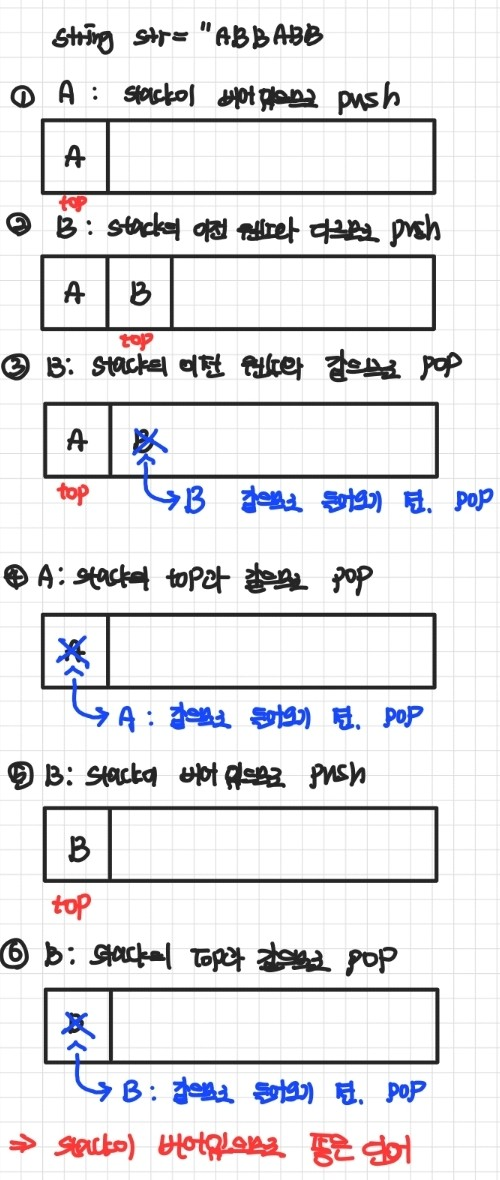 string str = "ABBABB
① A : stack이 비어있으므로 push
A
top
② B : stack의 이전 원소와 다르므로 push
A B
top
③ B: stack의 이전 원소와 같으므로 pop
A B
top
B 같으므로 들어오기 전. POP
④ A: stack의 top과 같으므로 pop
A
A : 같으므로 들어오기 전. POP
⑤ B: stack이 비어 있으므로 push
B
top
⑥ B: stack의 Top과 같으므로 POP
B
B : 같으므로 들어오기 전. POP
⇒ stack이 비어있으므로 좋은 단어